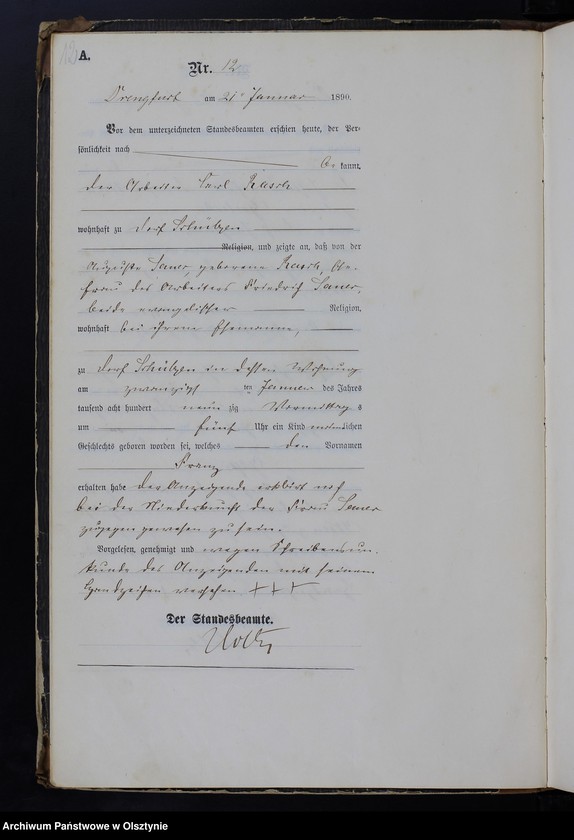 12 A.
Nr. 12
Drengfurt am 21 Januar 1890.
Vor dem unterzeichneten Standesbeamten erschien heute, der Per-
sönlichkeit nach
be kannt,
der Arbeiter Carl Rasch
wohnhaft zu Dorf Schülzen
Religion, und zeigte an, daß von der
Auguste Sauer, geborene Rasch, Ehe-
frau des Arbeiters Friedrich Sauer,
beide evangelischer Religion,
wohnhaft bei ihrem Ehemanne,
zu Dorf Schülzen in dessen Wohnung
am zwanzigsten Januar des Jahres
tausend acht hundert neun zig Vormittag s
um fünf Uhr ein Kind männlichen
Geschlechts geboren worden sei, welches den Vornamen
Franz
erhalten habe der Anzeigende erklärt noch
bei der Niederkunft der Frau Sauer
zugegen gewesen zu sein.
Vorgelesen, genehmigt und wegen Schreibensun-
kunde des Anzeigenden mit seinem
Handzeichen versehen +++
Der Standesbeamte.
Archiwum Państwowe w Olsztynie